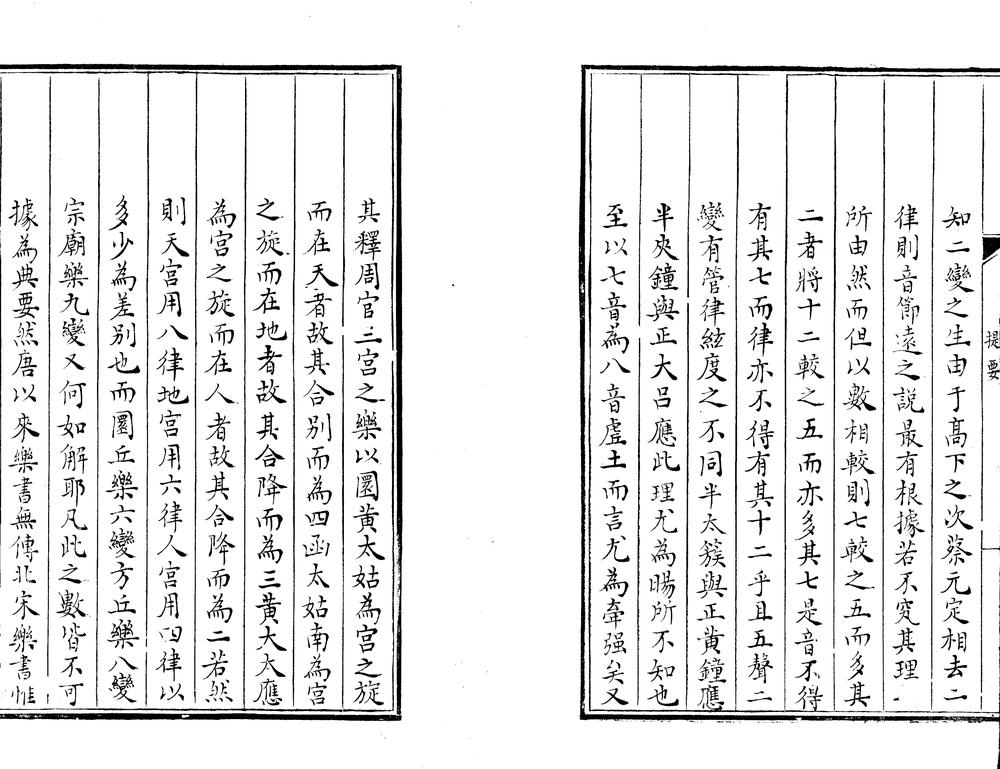 提要
知二變之生由于高下之次蔡元定相去二
律則音節遠之説最有根據若不究其理
所由然而但以數相較則七較之五而多其
二者將十二較之五而亦多其七是音不得
有其七而律亦不得有其十二乎且五聲二
變有管律絃度之不同半太簇與正黃鐘應
半夾鐘與正大吕應此理尤為暘所不知也
至以七音為八音虚土而言尤為牽强矣又
其釋周官三宮之樂以圜黃太姑為宮之旋
而在天者故其合別而為四函太姑南為宮
之旋而在地者故其合降而為三黃大太應
為宮之旋而在人者故其合降而為二若然
則天宮用八律地宮用六律人宮用四律以
多少為差别也而圜丘樂六變方丘樂八變
宗廟樂九變又何如解耶凡此之數皆不可
據為典要然唐以來樂書無傳北宋樂書惟